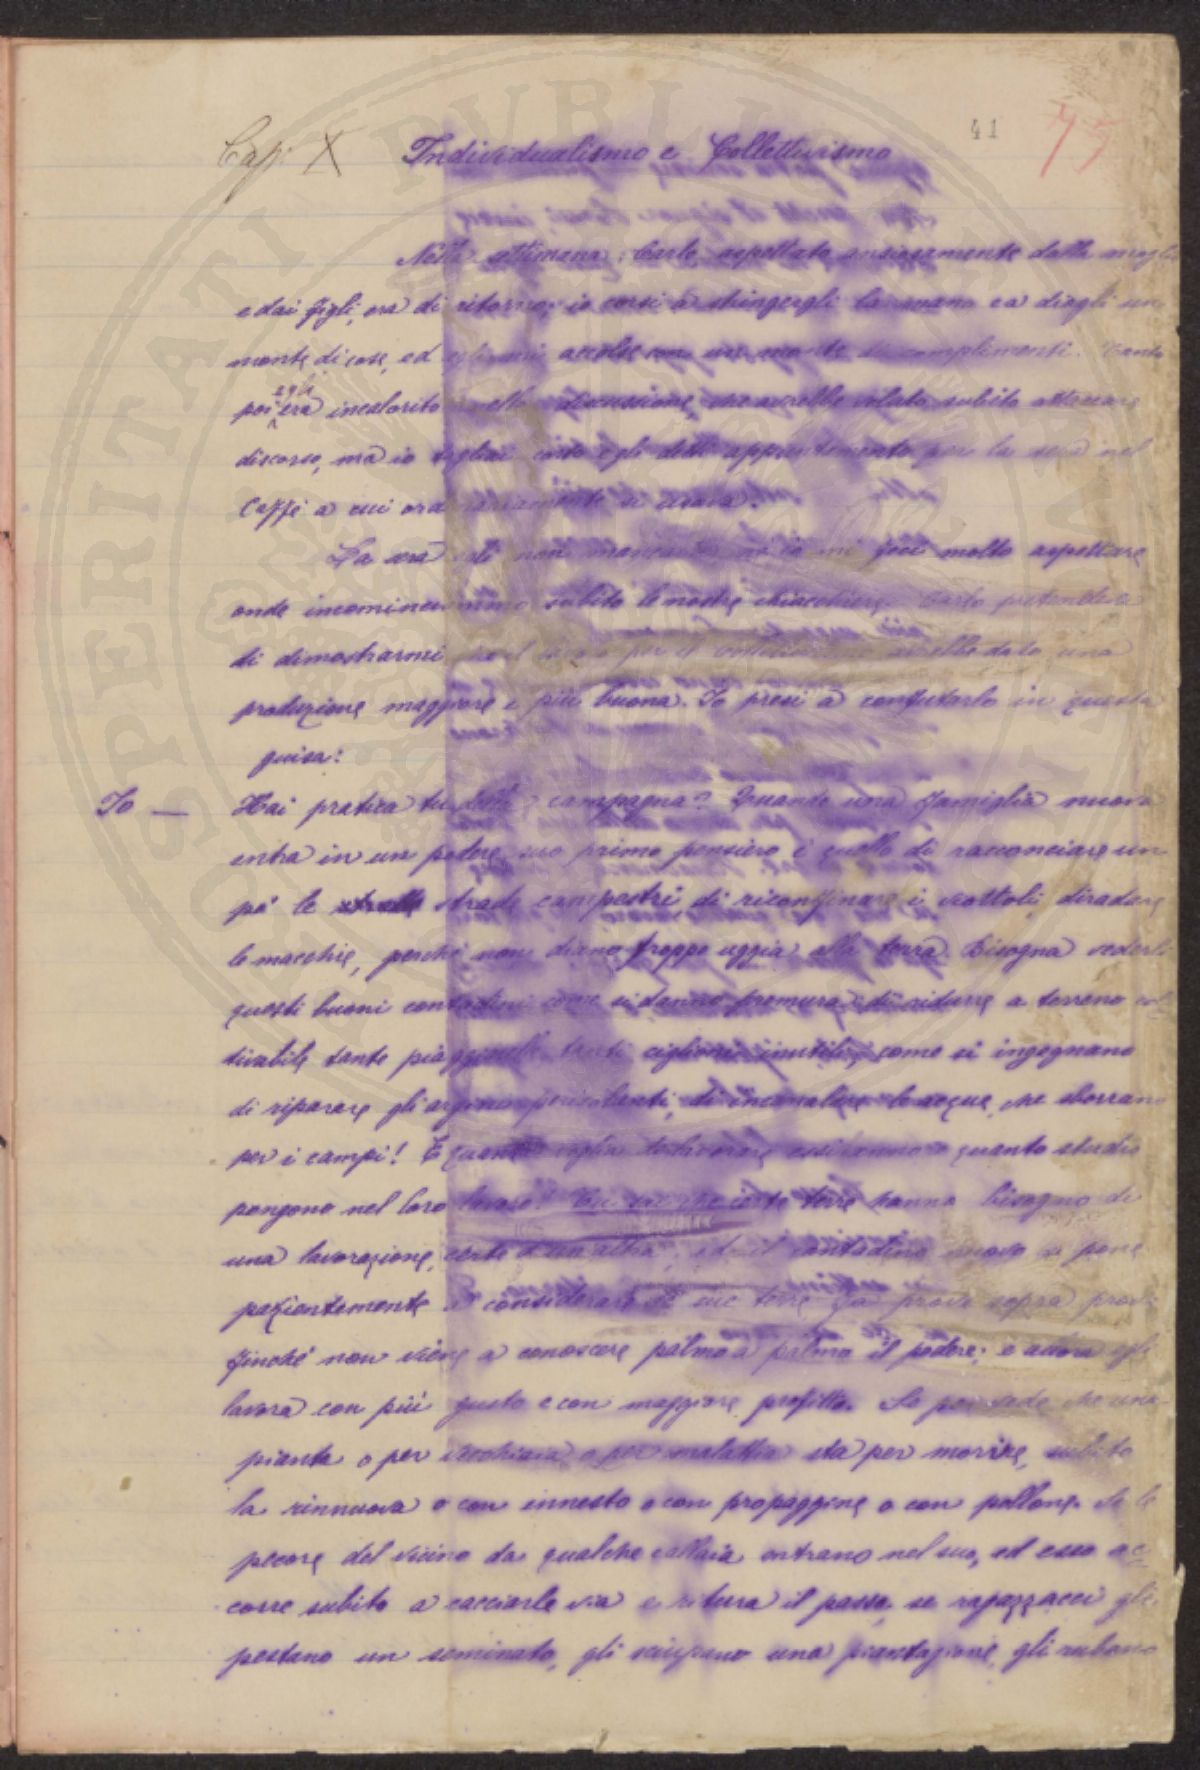 41
75
Cap. X Individualismo e Collettivismo
Nella settimana, Carlo, aspettato ansiosamente dalla moglie
e dai figli, era di ritorno; io corsi a stringergli la mano e a dirgli un
monte di cose, ed egli mi accolse con un monte di complimenti. Tanto
poi egli era incalorito nella discussione, che avrebbe voluto subito attaccare
discorso, ma io tagliai corto e gli detti appuntamento per la sera nel
Caffè a cui ordinariamente si usava.
La sera non mancò nè io mi feci molto aspettare
onde incominciammo subito le nostre chiacchiere. Carlo pretendeva
di dimostrarmi che il per il avrebbe dato una
produzione maggiore e più buona. Io presi a confutarlo in questa
guisa:
Io — Hai pratica tu della campagna? Quando una famiglia nuova
entra in un podere, suo primo pensiero è quello di racconciare un
pò le strade campestri di riconfinare i viottoli, diradare
le macchie, perchè non diano troppo uggia alla terra. Bisogna vederli
questi buoni contadini come si danno premura di ridurre a terreno col-
tivabile tante piaggie tanti ciglioni inutili, come si ingegnano
di riparare gli argini pericolanti, di incanalare le acque, che sborrano
per i campi! E quanta voglia di lavorare essi hanno e quanto studio
pongono nel loro lavoro! Tu sai che certe terre hanno bisogno di
una lavorazione, certe d'un'altra, ed il contadino nuovo si pone
pazientemente a considerare le sue terre fa prova sopra prova
finchè non viene a conoscere palmo a palmo il podere; e allora egli
lavora con più gusto e con maggiore profitto. Se poi vede che una
pianta o per vecchiaia o per malattia sta per morire, subito
la rinnuova o con innesto o con propaggine o con pollone. Se le
pecore del vicino da qualche callaia entrano nel suo, ed esso ac-
corre subito a cacciarle via e ritura il passo, se ragazzacci gli
pestano un seminato, gli sciupano una piantagione, gli rubano